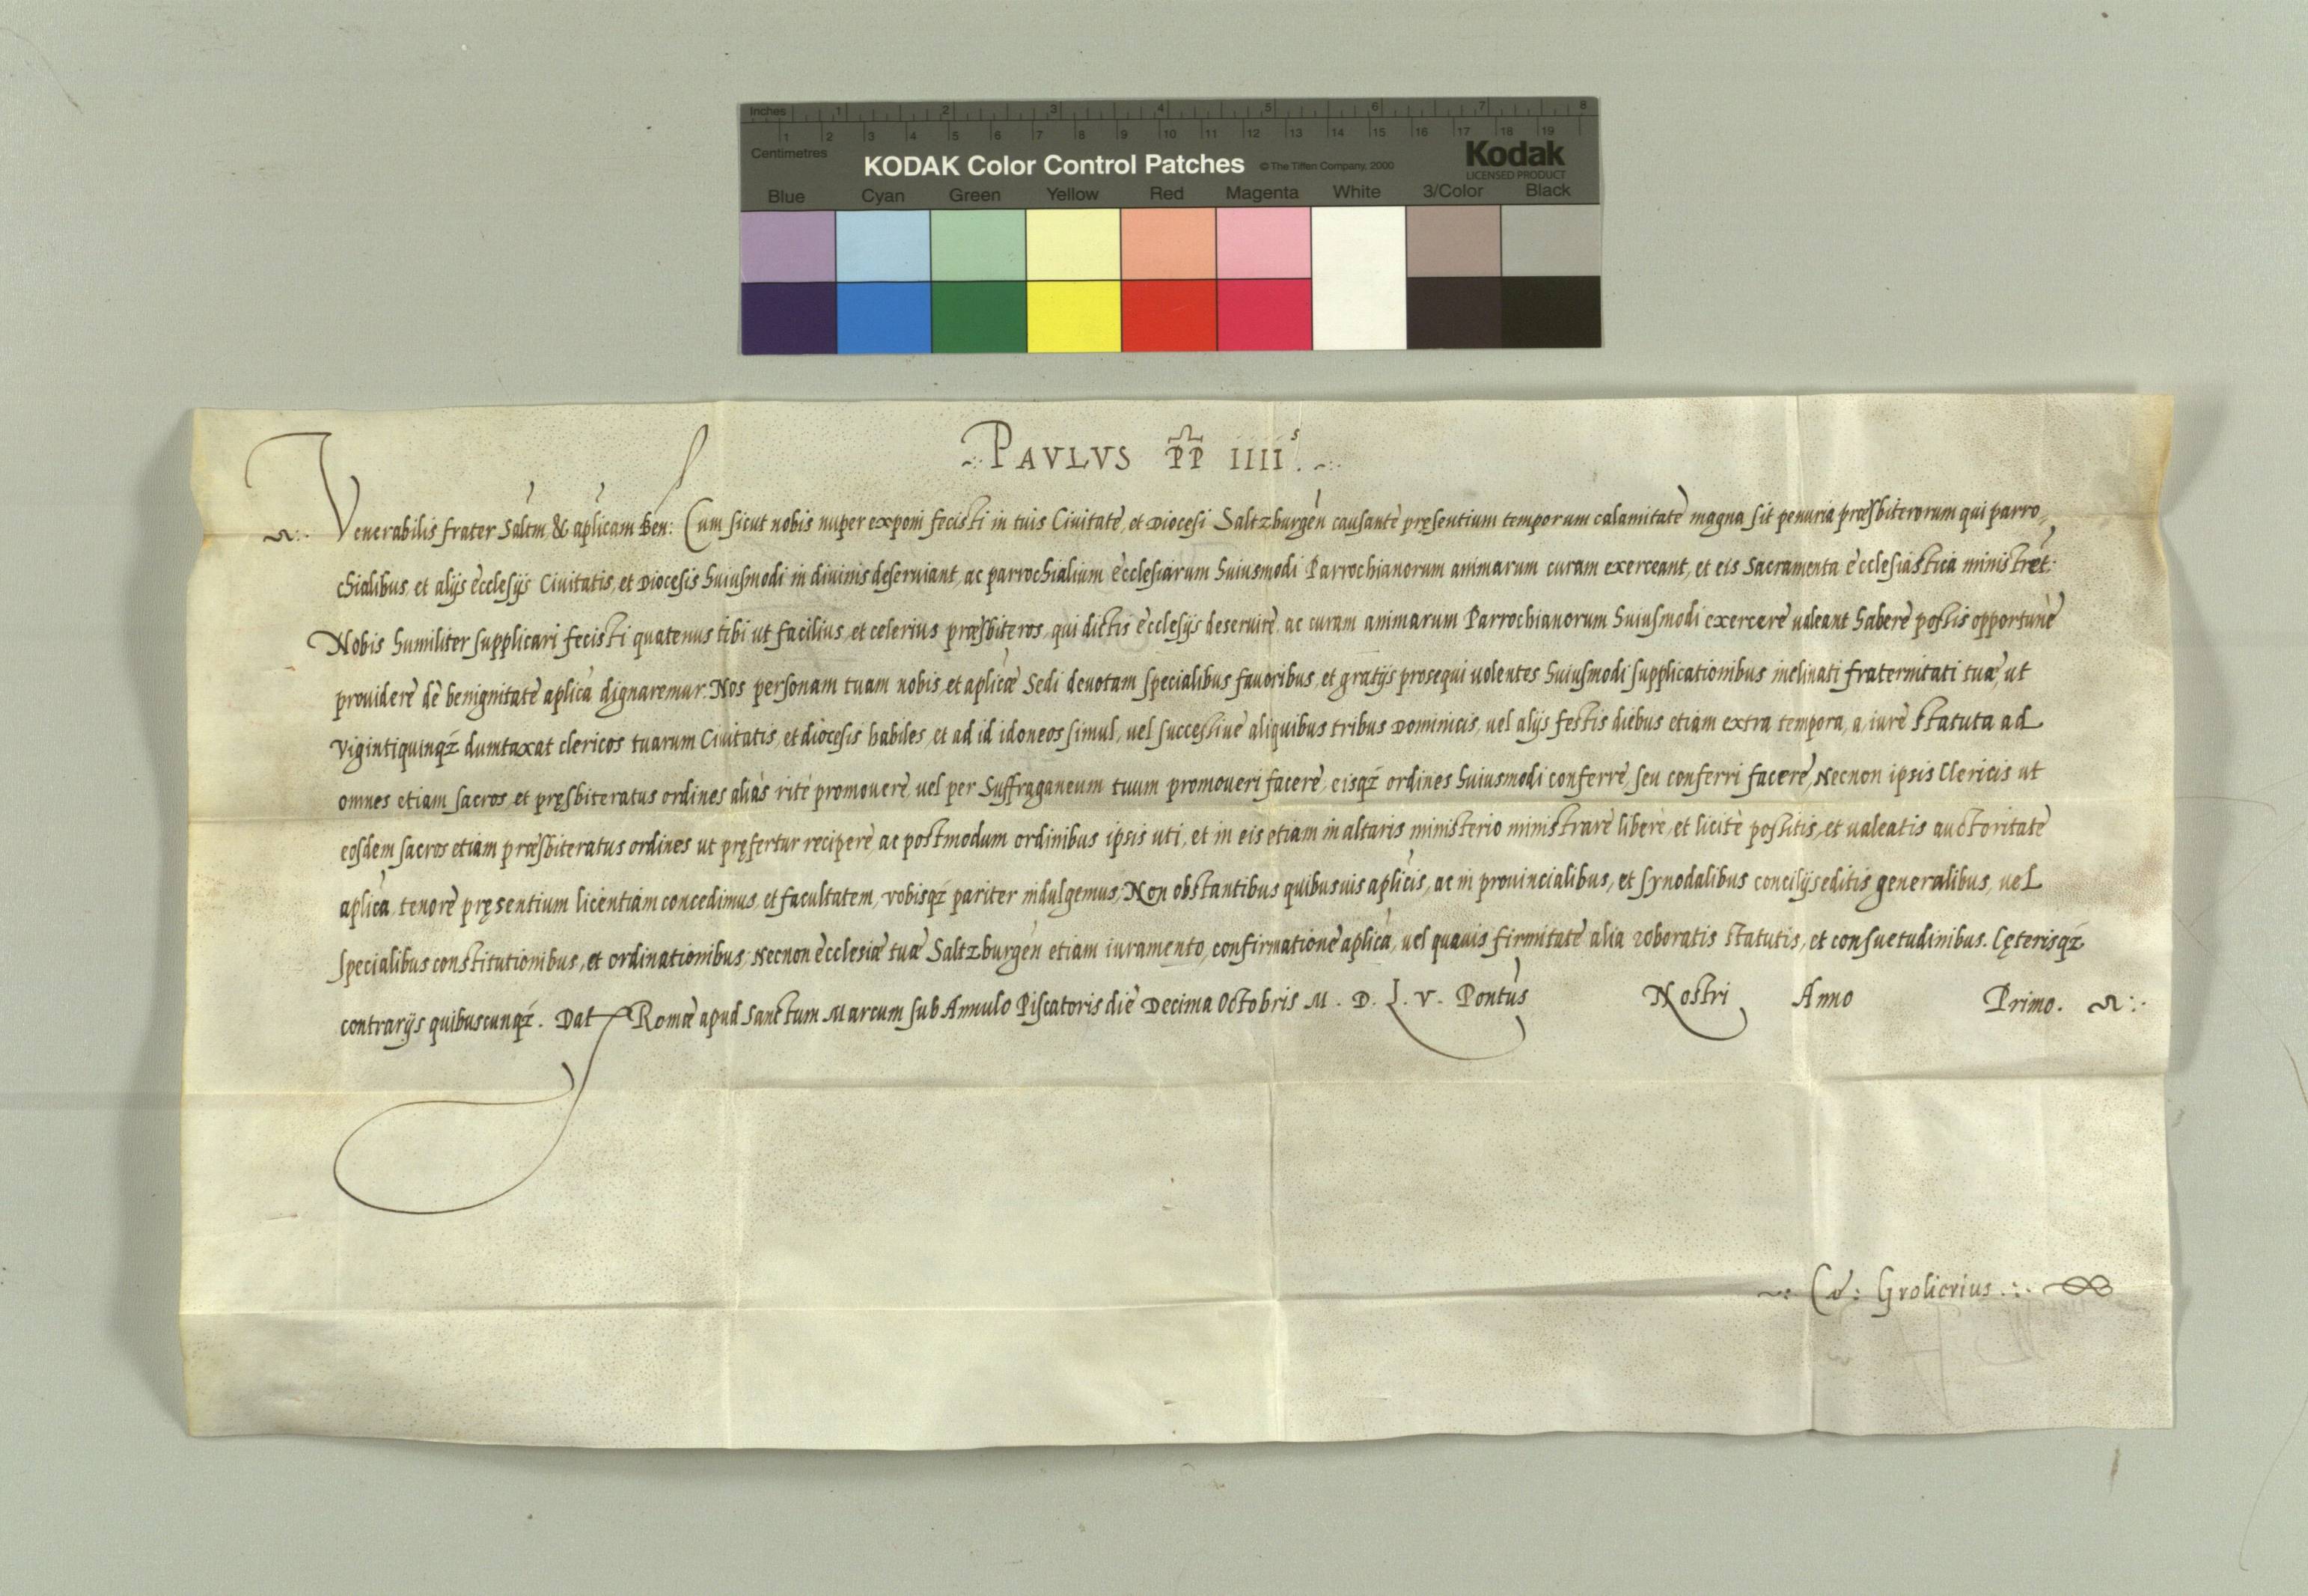 Inches 1 2 3 4 5 6 7 8
1 2 3 4 5 6 7 8 9 10 11 12 13 14 15 16 17 18 19
Centimetres
KODAK Color Control Patches © The Tiffen Company, 2000 Kodak
LICENSED PRODUCT
Blue Cyan Green Yellow Red Magenta White 3/Color Black
PAVLVS PP IIIIs.
Venerabilis frater Saltm & aplicam Ben: Cum sicut nobis nuper exponi fecisti in tuis Civitate, et Diocesi Saltzburgen causante pręsentium temporum calamitate magna sit penuria præsbiterorum qui parro,,
chialibus, et alijs ecclesijs Civitatis, et Diocesis huiusmodi in divinis deserviant, ac parrochialium ecclesiarum huiusmodi Parrochianorum animarum curam exerceant, et eis Sacramenta ecclesiastica ministret:
Nobis humiliter supplicari fecisti quatenus tibi ut facilius, et celerius præsbiteros, qui dictis ecclesijs deseruire, ac curam animarum Parrochianorum huiusmodi exercere ualeant habere possis opportune
prouidere de benignitate aplica dignaremur. Nos personam tuam nobis, et aplicæ Sedi deuotam specialibus fauoribus, et gratijs prosequi uolentes huiusmodi supplicationibus inclinati fraternitati tuæ, ut
Vigintiquinqȝ dumtaxat clericos tuarum Ciuitatis, et diocesis habiles, et ad id idoneos simul, uel successiue aliquibus tribus Dominicis, uel alijs festis diebus etiam extra tempora, a, iure statuta ad
omnes etiam sacros, et pręsbiteratus ordines aliàs rite promouere, uel per Suffraganeum tuum promoueri facere, eisqȝ ordines huiusmodi conferre, seu conferri facere, Necnon ipsis Clericis ut
eosdem sacros etiam præsbiteratus ordines ut pręfertur recipere, ac postmodum ordinibus ipsis uti, et in eis etiam in altaris ministerio ministrare libere, et licite possitis, et ualeatis auctoritate
aplica, tenore pręsentium licentiam concedimus, et facultatem, vobisqȝ pariter indulgemus; Non obstantibus quibusuis aplicis, ac in prouincialibus, et synodalibus concilijs editis generalibus, uel
specialibus constitutionibus, et ordinationibus, Necnon ecclesiæ tuæ Saltzburgen etiam iuramento, confirmatione aplica, uel quauis firmitate alia roboratis statutis, et consuetudinibus. Cęterisqȝ
contrarijs quibuscunqȝ. Dat Romæ apud Sanctum Marcum sub Annulo Piscatoris die Decima Octobris M. D. L. V. Pontus Nostri Anno Primo.
Grolierius